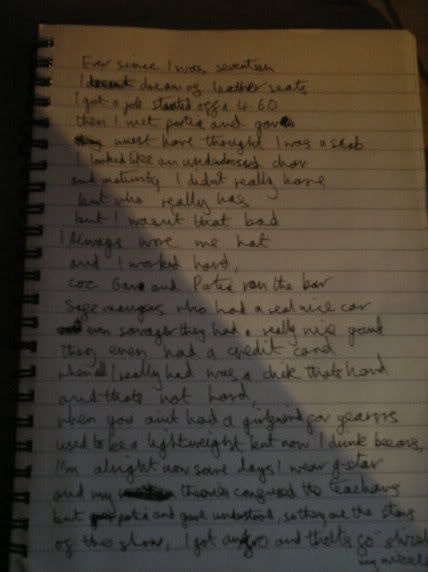 Ever since I was seventeen
I dream of leather seats
I got a job started off a 4.60
then I met portia and gave
must have thought I was a scab
I looked like an underdressed chav
and maturity I didn't really have
but who really has
but I wasn't that bad
I Always wore me hat
and I worked hard,
coz Gav and Portia ran the bar
Sage who had a real nice car
even savager they had a really nice
they even had a credit card
when all I really had was a dick thats hard
and thats not hard,
when you aint had a girlfriend for yearrrs
used to be a lightweight but now I drink becars,
I'm alright now some days I wear g-star
and my theories conquered the teachers
but portia and gave understood, so they are the stars
of the show, I got and go
my